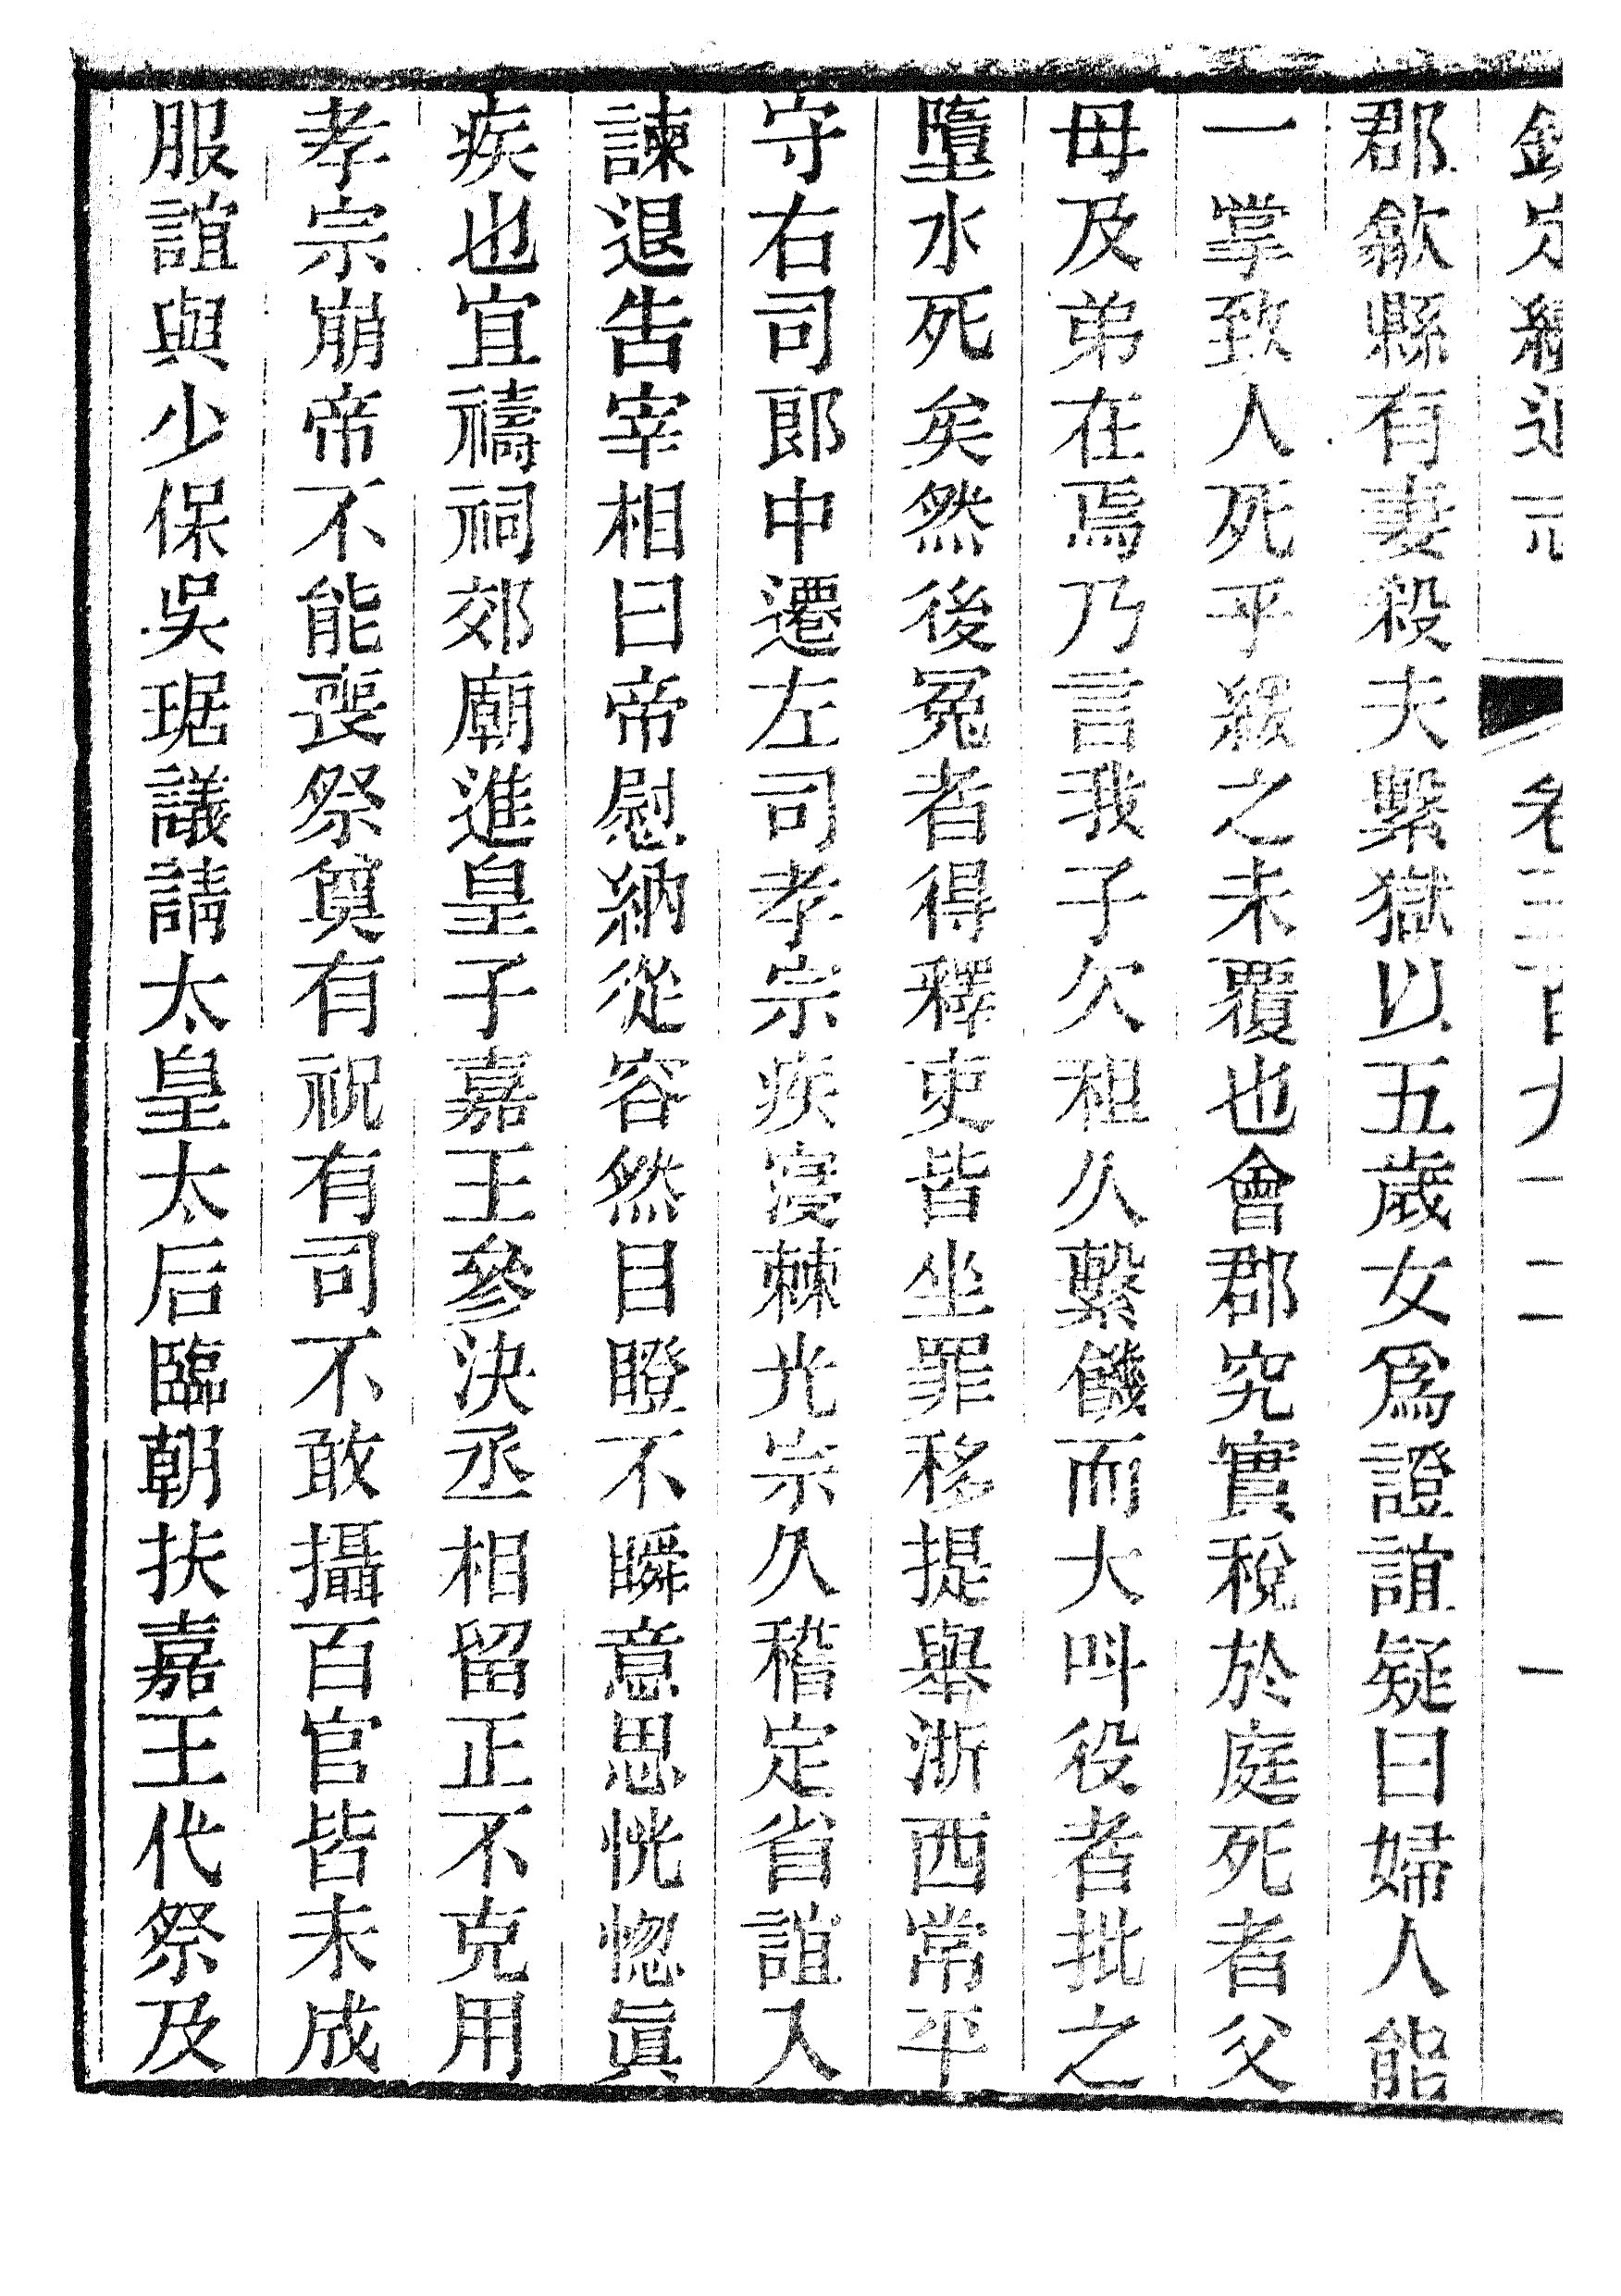 郡歙縣有妻殺夫繫獄以五歲女爲證誼疑曰婦人能
一掌致人死乎緩之未覆也會郡究實稅於庭死者父
母及弟在焉乃言我子欠租久繫饑而大呌役者批之
墮水死矣然後冤者得釋吏皆坐罪移提舉浙西常平
守右司郎中遷左司孝宗疾寖棘光宗久稽定省誼入
諫退告宰相曰帝慰納從容然目瞪不瞬意思恍惚眞
疾也宜禱祠郊廟進皇子嘉王參決丞相留正不克用
孝宗崩帝不能喪祭奠有祝有司不敢攝百官皆未成
服誼與少保吳琚議請太皇太后臨朝扶嘉王代祭及